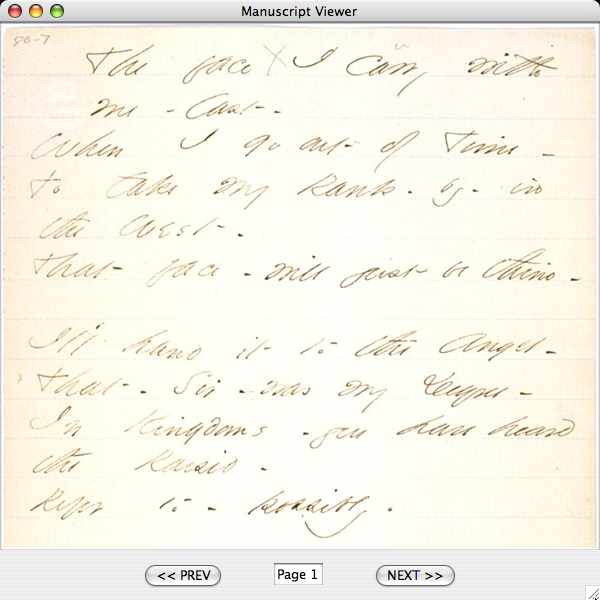 Manuscript Viewer
80-7
The face I carry with
me - last -
When I go out of Time -
To take my Rank - by - in
the West -
That face - will just be thine -
I'll hand it to the Angel -
That - Sir - was my Degree -
In Kingdoms - you have heard
the Raised -
Refer to - possibly.
<< PREV
Page 1
NEXT >>